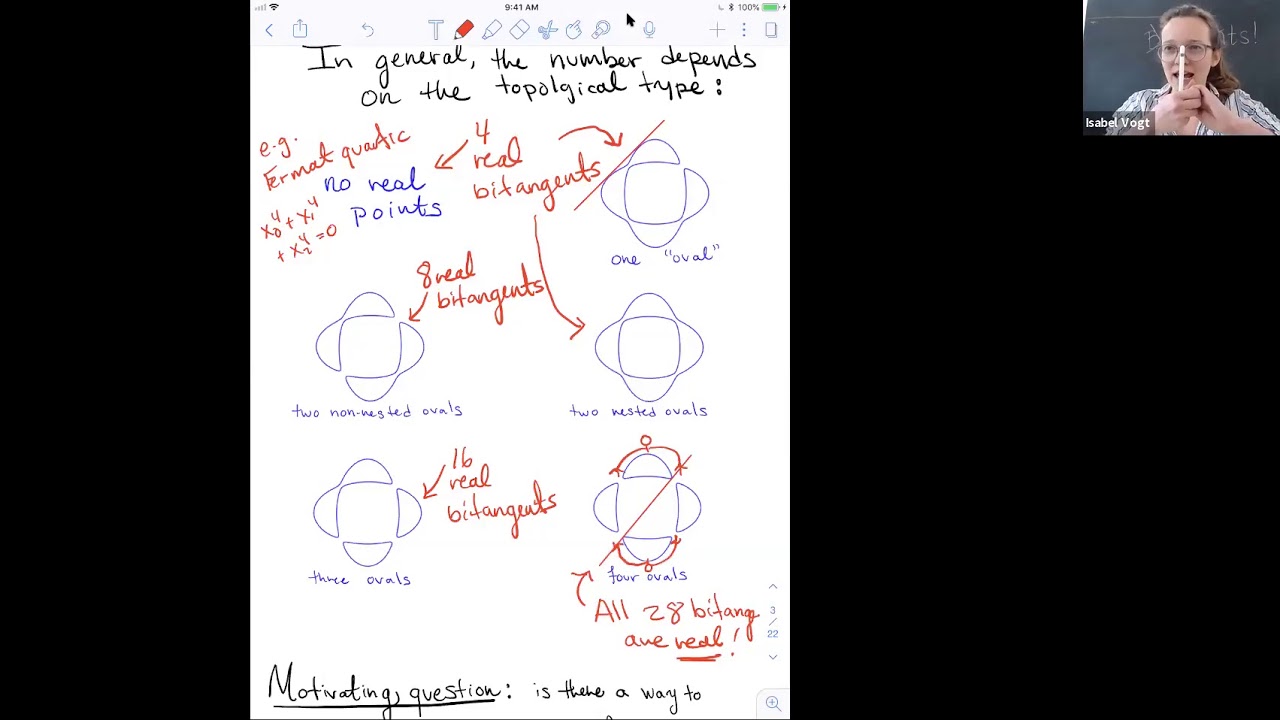 9:41 AM
100%
In general, the number depends
on the topolgical type:
e.g.
Fermat quartic
x₀⁴ + x₁⁴
+ x₂⁴ = 0
no real
points
4
real
bitangents
one "oval"
8 real
bitangents
two non-nested ovals
two nested ovals
16
real
bitangents
three ovals
four ovals
All 28 bitang
are real!
3
/
22
Motivating question: is there a way to
Isabel Vogt